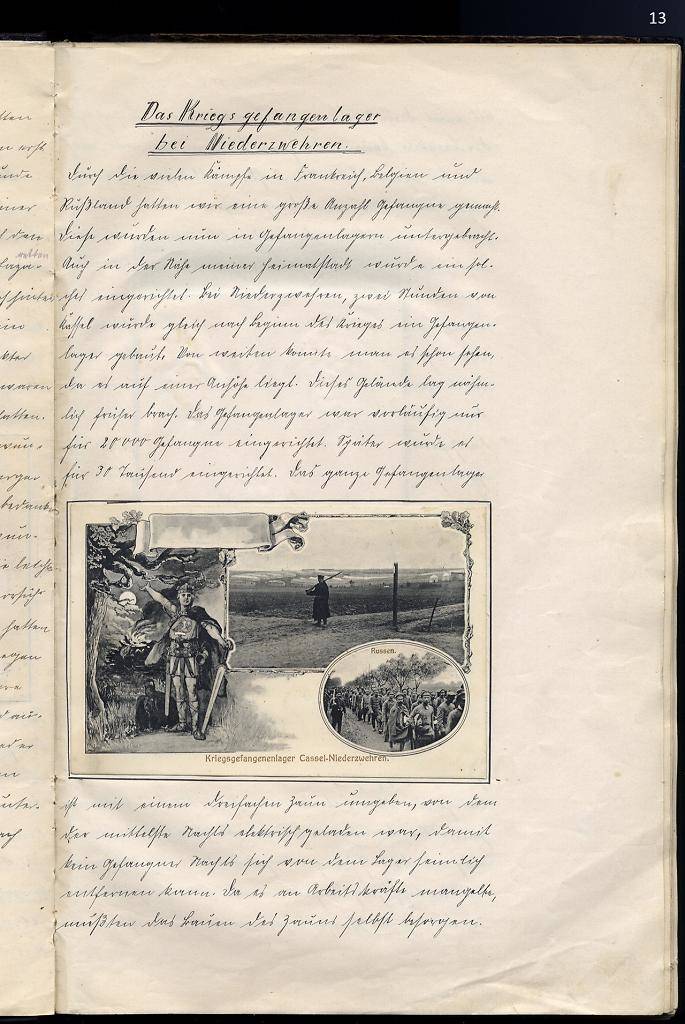 13
Das Kriegsgefangenlager
bei Niederzwehren.
Durch die vielen Kämpfe in Frankreich, Belgien und
Rußland hatten wir eine große Anzahl Gefangne gemacht.
Diese wurden nun in Gefangenlagern untergebracht.
Auch in der Nähe meiner Heimatstadt wurde ein sol-
ches eingerichtet. Bei Niederzwehren, zwei Stunden von
Kassel wurde gleich nach Beginn des Krieges ein Gefangen-
lager gebaut. Von weiten konnte man es schon sehen,
da es auf einer Anhöhe liegt. Dieses Gelände lag näm-
lich früher brach. Das Gefangenlager war vorläufig nur
für 20 000 Gefangne eingerichtet. Später wurde es
für 30 Tausend eingerichtet. Das ganze Gefangenlager
Russen.
Kriegsgefangenenlager Cassel-Niederzwehren.
ist mit einem dreifachen Zaun umgeben, von dem
der mittelste Nachts elektrisch geladen war, damit
kein Gefangner Nachts sich von dem Lager heimlich
entfernen kann. Da es an Arbeitskräfte mangelte,
mußten das Bauen des Zauns selbst besorgen.